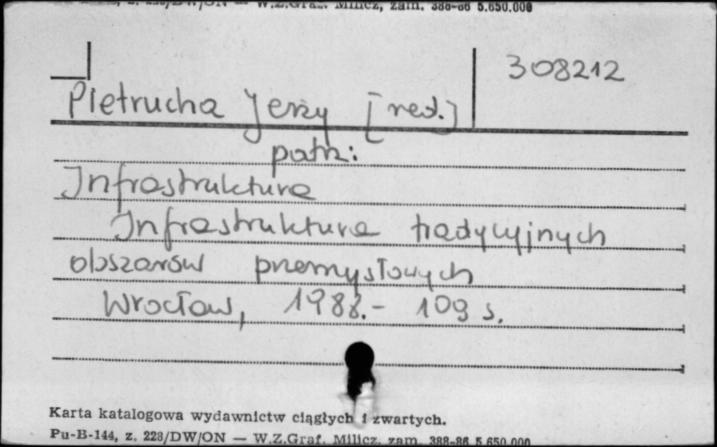 W.Z.Graf. Milicz, zam. 388-86 5.650.000
308212
Pietrucha Jerzy [red.]
patrz:
Infrastruktura
Infrastruktura tradycyjnych
obszarów przemysłowych
Wrocław, 1988.- 109 s.
Karta katalogowa wydawnictw ciągłych i zwartych.
Pu-B-144, z. 228/DW/ON — W.Z.Graf. Milicz, zam. 388-86 5.650.000